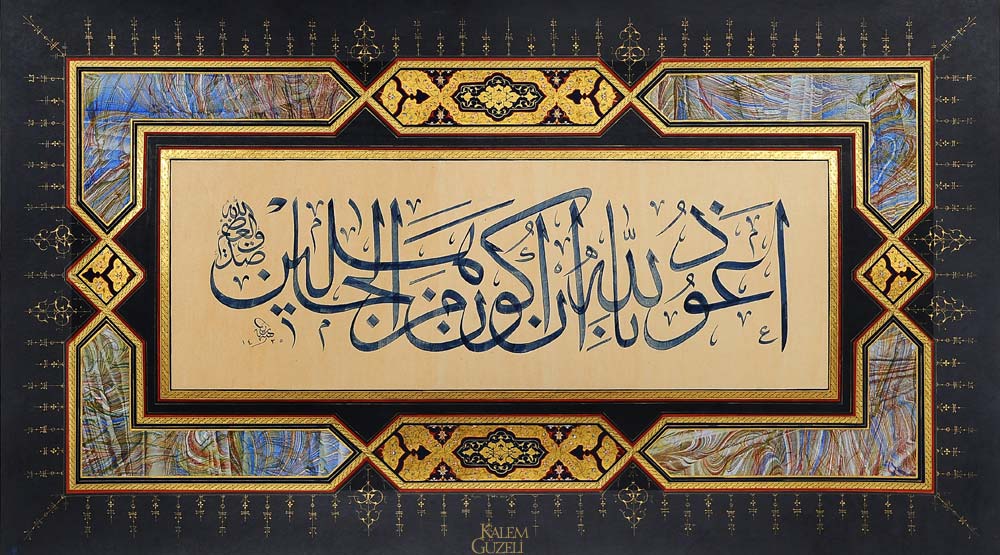 اعوذ بالله ان اكون من الجاهلين
صدق الله العظيم
KALEM
GÜZELİ